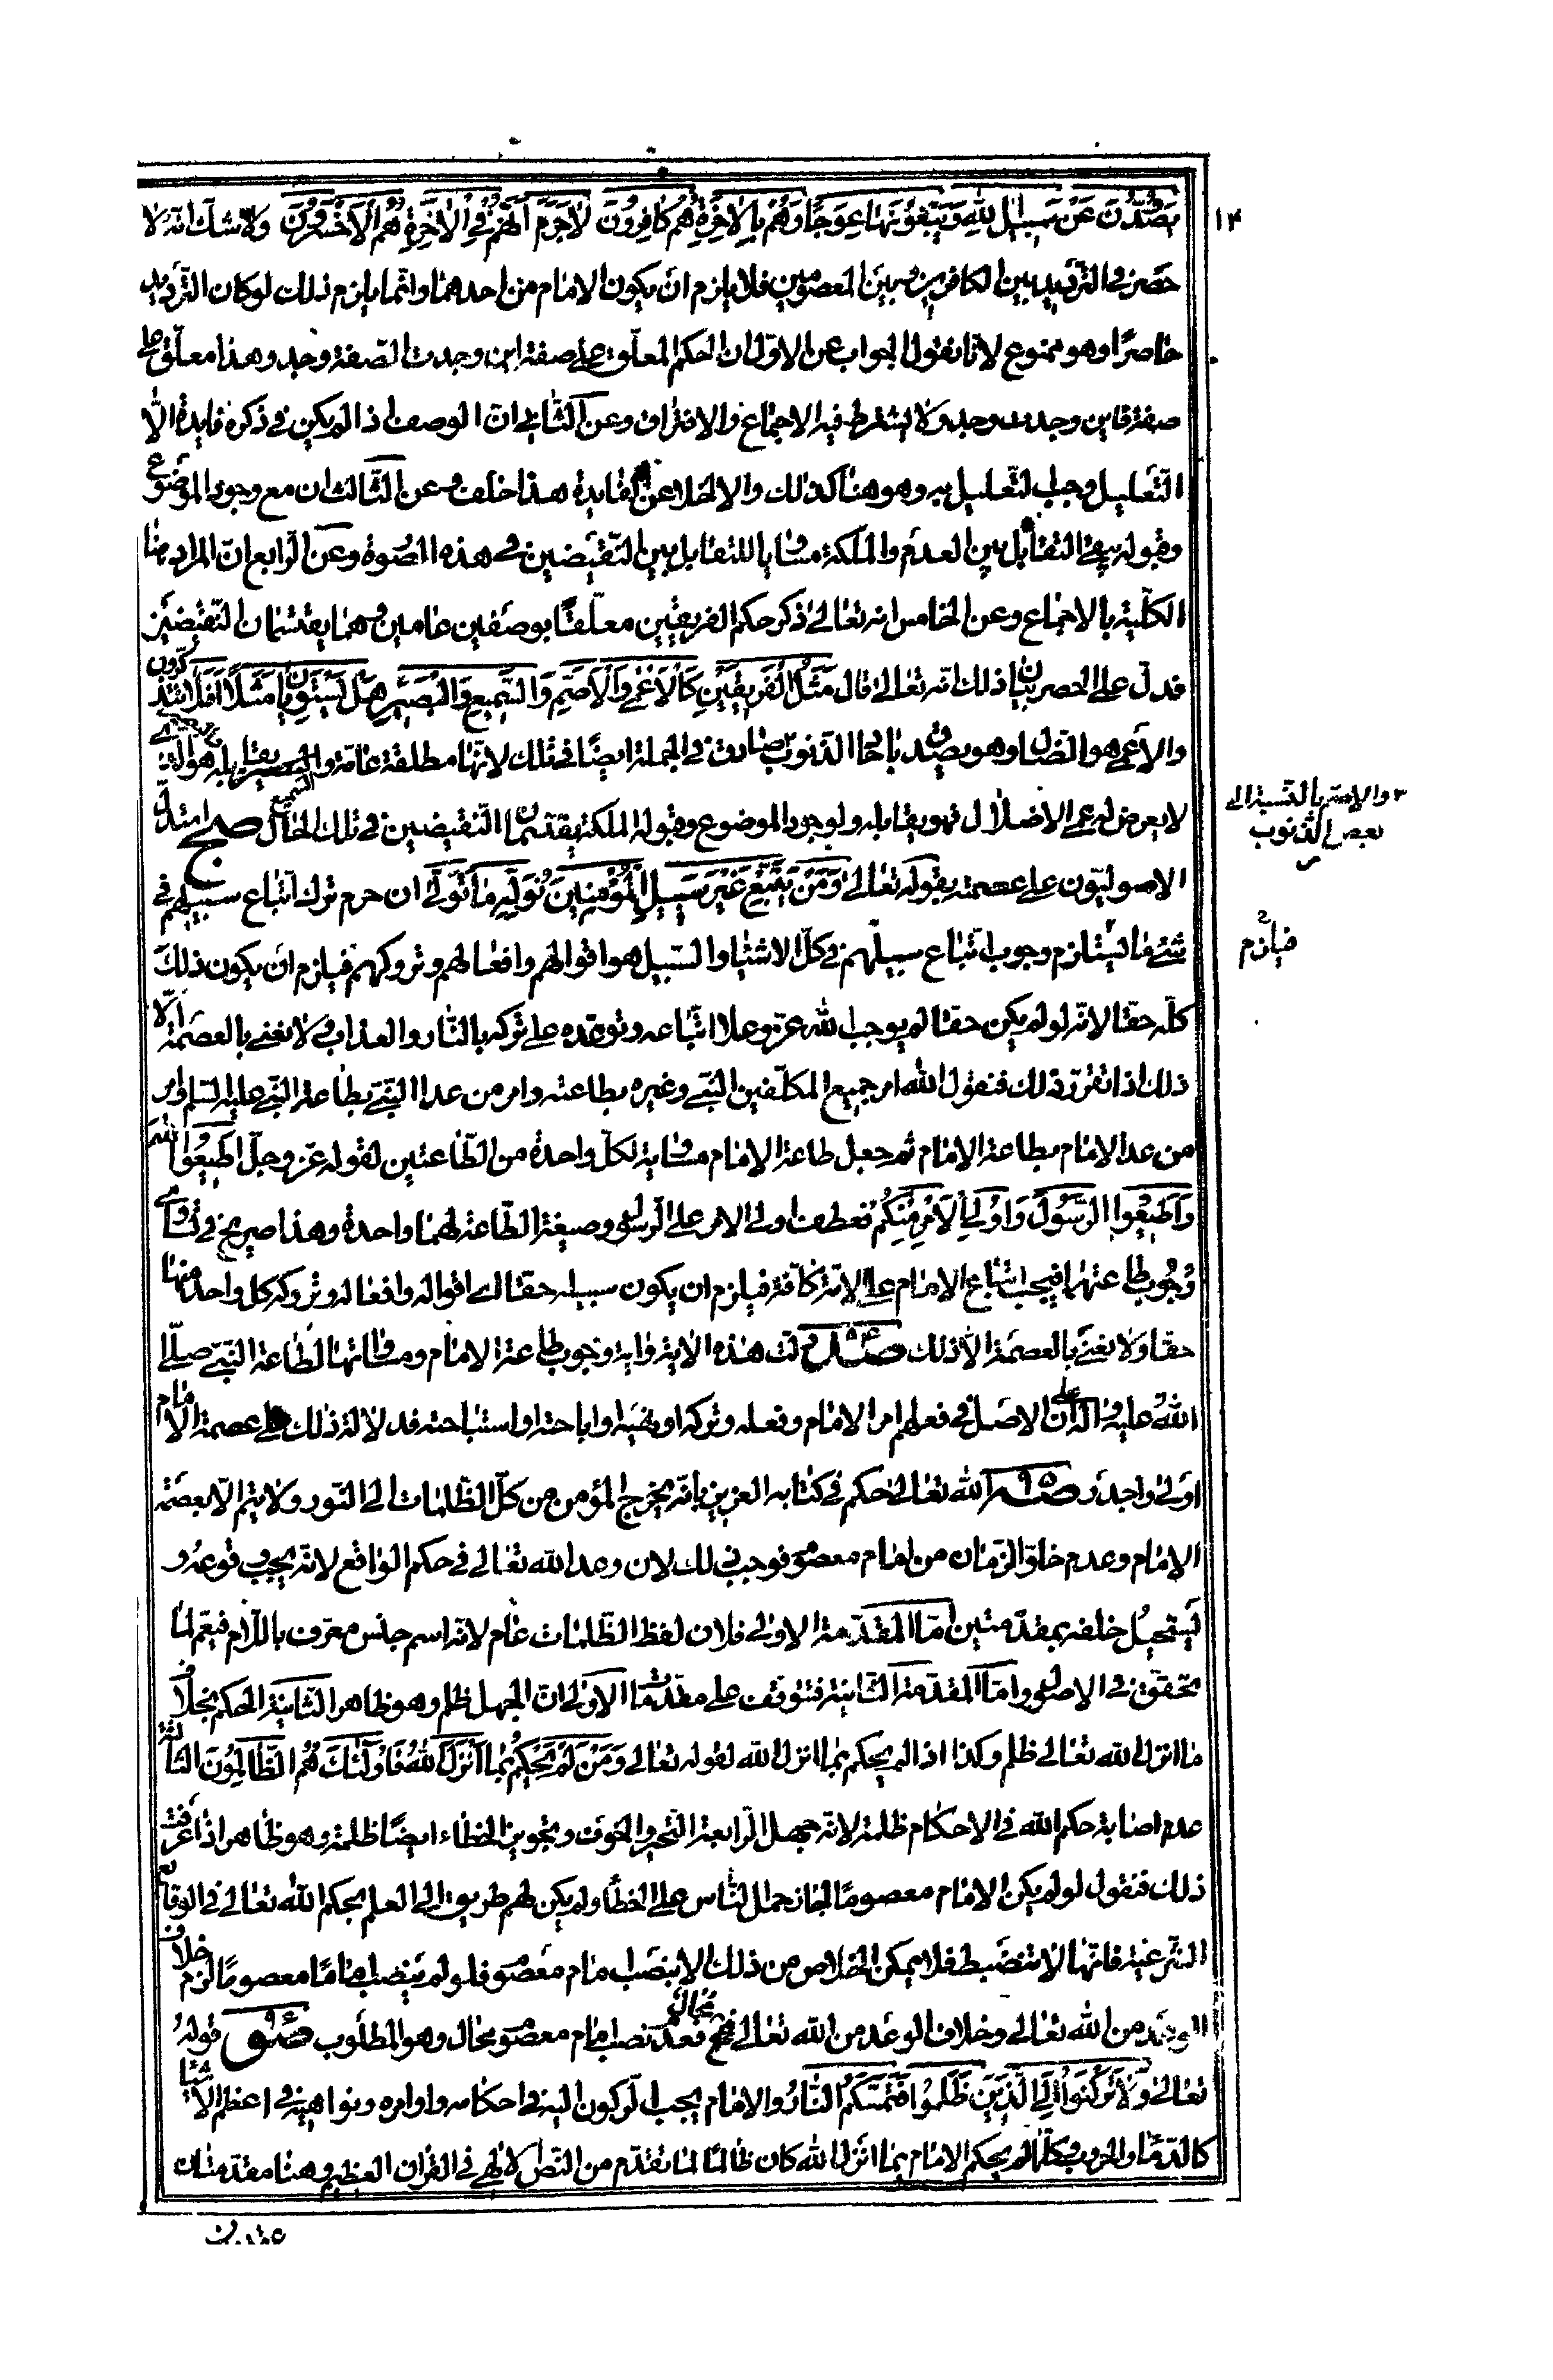 ١٣
يَصُدُّونَ عَنْ سَبِيلِ اللهِ وَيَبْغُونَهَا عِوَجًا وَهُمْ بِالْاخِرَةِ هُمْ كَافِرُونَ لَاجَرَمَ اَنَّهُمْ فِي الْاخِرَةِ هُمُ الْاَخْسَرُونَ ولا شك انه لا
حصر في الترديد بين الكافرين وبين المعصومين فلا يلزم ان يكون الامام من احدهما وانما يلزم ذلك لو كان الترديد
حاصرا وهو ممنوع لانا نقول الجواب عن الاول ان الحكم المعلق على صفة اين وجدت الصفة وجد وهذا معلق على
صفة فاين وجدت وجد ولا يشترط فيه الاجتماع والافتراق وعن الثاني ان الوصف اذا لم يكن في ذكره فايدة الا
التعليل وجب التعليل به وهو هنا كذلك والا لخلا عن الفايدة هذا خلف وعن الثالث ان مع وجود الموضوع
وقبوله يبقى التقابل بين العدم والملكة مساويا للتقابل بين النقيضين في هذه الصورة وعن الرابع ان المراد هنا
الكلية بالاجماع وعن الخامس انه تعالى ذكر حكم الفريقين معلقا بوصفين عامين وهما يقتسمان النقيضين
فدل على الحصر بيان ذلك انه تعالى قال مَثَلُ الْفَرِيقَيْنِ كَالْاَعْمٰى وَالْاَصَمِّ وَالسَّمِيعِ وَالْبَصِيرِ هَلْ يَسْتَوِيَانِ مَثَلًا اَفَلَا تَذَكَّرُونَ
والاعمى هو الضال وهو يصدق باحد الذنوب صادق في الجملة ايضا في تلك لانها مطلقة عامة والبصير يقابله هو الذي
٣ والاصم بالنسبة الى
بعض الذنوب
لا يعرض له عمى الاضلال فهو يقابله ولوجود الموضوع وقبوله الملكة يقتسمان النقيضين في تلك الحال استدل
الاصوليون على عصمة بقوله تعالى وَمَنْ يَتَّبِعْ غَيْرَ سَبِيلِ الْمُؤْمِنِينَ نُوَلِّهِ مَا تَوَلّٰى ان حرم ترك اتباع سبيلهم في
فيلزم
شيء ما فيستلزم وجوب اتباع سبيلهم في كل الاشياء والسبيل هو اقوالهم وافعالهم وتروكهم فيلزم ان يكون ذلك
كله حقا لانه لو لم يكن حقا لم يوجب الله عز وعلا اتباعه وتوعده على تركه بالنار والعذاب ولا نعني بالعصمة الا
ذلك اذا تقرر ذلك فنقول الله امر جميع المكلفين النبي وغيره بطاعته وامر من عدا النبي بطاعة النبي عليه السلم وامر
من عدا الامام بطاعة الامام ثم جعل طاعة الامام مساوية لكل واحدة من الطاعتين لقوله عز وجل اَطِيعُوا اللهَ
وَاَطِيعُوا الرَّسُولَ وَاُولِي الْاَمْرِ مِنْكُمْ فعطف اولى الامر على الرسول وصيغة الطاعة لهما واحدة وهذا صريح في تساوى
وجوب طاعتهما فيجب اتباع الامام على الامة كافة فيلزم ان يكون سبيله حقا اى اقواله وافعاله وتروكه كل واحد منها
حقا ولا نعني بالعصمة الا ذلك دلت هذه الاية واية وجوب طاعة الامام ومساواتها لطاعة النبي صلى
الله عليه واله على ان الاصل في فعلهم امر الامام وفعله وتركه او نهيه او اباحته او استباحته فدلالة ذلك على عصمة الامام
اولى واجدر الله تعالى حكم في كتابه العزيز بانه يخرج المؤمن من كل الظلمات الى النور ولا يتم الا بعصمة
الامام وعدم خلو الزمان من امام معصوم فوجب ذلك لان وعد الله تعالى في حكم الواقع لانه يجب وقوعه و
يستحيل خلفه بمقدمتين اما المقدمة الاولى فلان لفظ الظلمات عام لانه اسم جنس معرف باللام فيعم لما
تحقق في الاصول واما المقدمة الثانية فتتوقف على مقدمات الاولى ان الجهل ظلم وهو ظاهر الثانية الحكم بخلاف
ما انزل الله تعالى ظلم وكذا اذا لم يحكم بما انزل الله لقوله تعالى وَمَنْ لَمْ يَحْكُمْ بِمَا اَنْزَلَ اللهُ فَاُولٰئِكَ هُمُ الظَّالِمُونَ الثالثة
عدم اصابة حكم الله في الاحكام ظلمة لانه جهل الرابعة التحير والخوف وتجويز الخطاء ايضا ظلمة وهو ظاهر اذا عرفت
ذلك فنقول لو لم يكن الامام معصوما لجاز حمل الناس على الخطأ ولم يكن لهم طريق الى العلم بحكم الله تعالى في الوقايع
الشرعية فانها لا تنضبط فلا يمكن الخلاص من ذلك الا بنصب امام معصوم فلو لم ينصب اماما معصوما لزم خلاف
الوعد من الله تعالى وخلاف الوعد من الله تعالى محال فعدم نصب امام معصوم محال وهو المطلوب قوله
تعالى وَلَا تَرْكَنُوا اِلَى الَّذِينَ ظَلَمُوا فَتَمَسَّكُمُ النَّارُ والامام يجب الركون اليه في احكامه واوامره ونواهيه في اعظم الاشياء
كالدماء والحروب وكلما لم يحكم الامام بما انزل الله كان ظالما لما تقدم من النص الالهى في القران العظيم وهنا مقدمتان